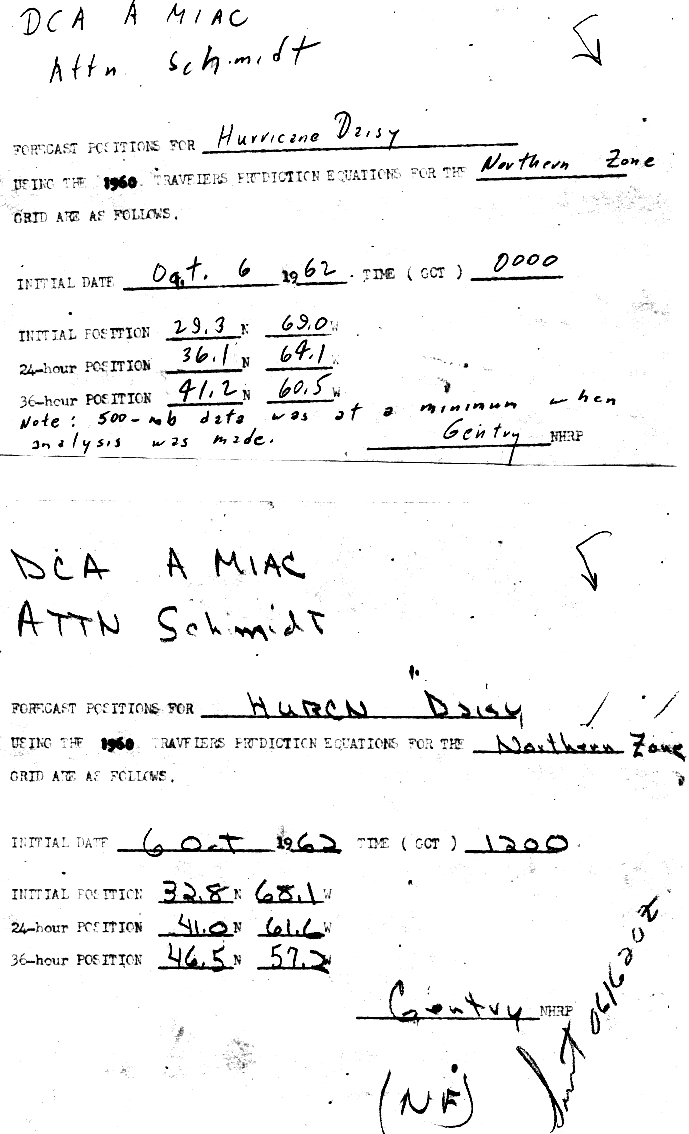 DCA A MIAC
Attn Schmidt
FORECAST POSITIONS FOR Hurricane Daisy
USING THE 1960 TRAVELERS PREDICTION EQUATIONS FOR THE Northern Zone
GRID ARE AS FOLLOWS.
INITIAL DATE Oct. 6 1962. TIME ( GCT ) 0000
INITIAL POSITION 29.3 N 69.0 W
24-hour POSITION 36.1 N 64.1 W
36-hour POSITION 41.2 N 60.5 W
Note: 500-mb data was at a minimum when
analysis was made. Gentry NHRP
DCA A MIAC
ATTN Schmidt
FORECAST POSITIONS FOR HURCN "Daisy
USING THE 1960 TRAVELERS PREDICTION EQUATIONS FOR THE Northern Zone
GRID ARE AS FOLLOWS.
INITIAL DATE 6 Oct 1962 TIME ( GCT ) 1200
INITIAL POSITION 32.8 N 68.1 W
24-hour POSITION 41.0 N 61.6 W
36-hour POSITION 46.5 N 57.2 W
Gentry NHRP
(NF)
Sent 061620Z